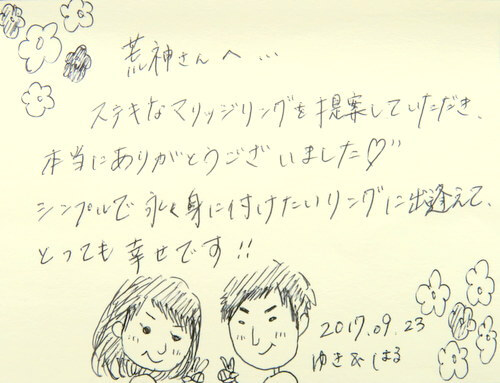 荒神さんへ…
ステキなマリッジリングを提案していただき、
本当にありがとうございました♡"
シンプルで永く身に付けたいリングに出逢えて、
とっても幸せです!!
2017.09.23
ゆき&はる